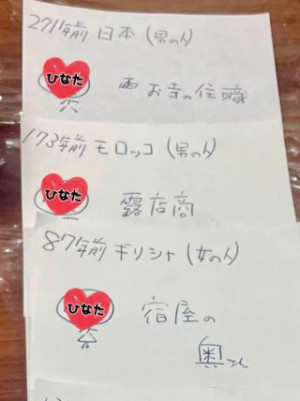 271年前 日本 (男の人)
ひなた
西 お寺の住職
173年前 モロッコ (男の人)
ひなた
露店商
87年前 ギリシャ (女の人)
ひなた
宿屋の
奥さん